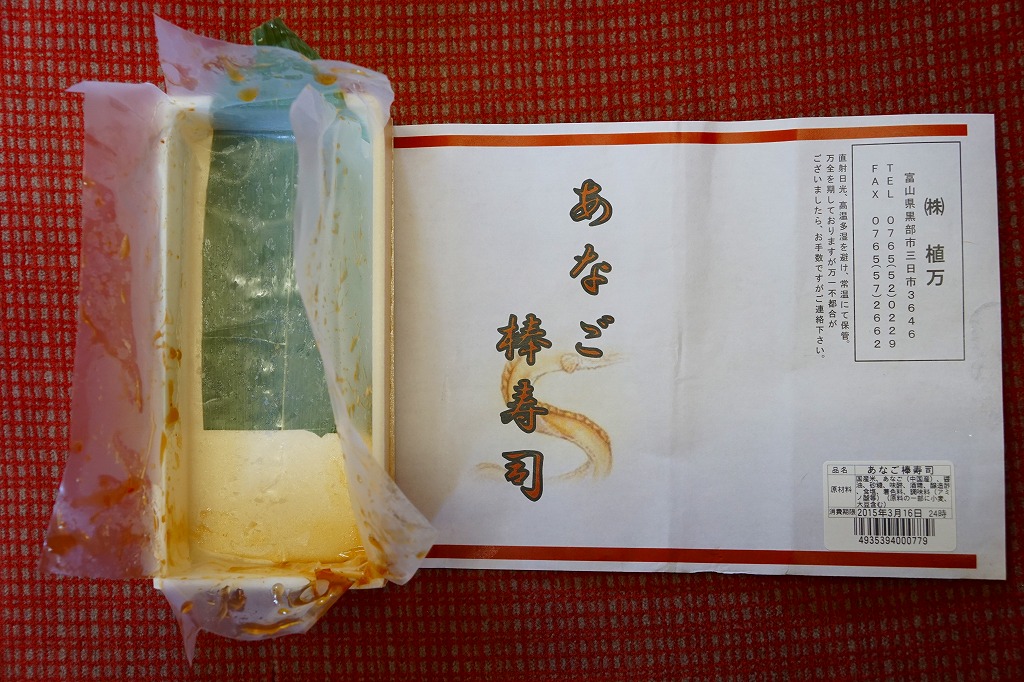 ㈱ 植万
富山県黒部市三日市3646
TEL 0765(52)0229
FAX 0765(57)2662
直射日光、高温多湿を避け、常温にて保管。
万全を期しておりますが万一不都合が
ございましたら、お手数ですがご連絡下さい。
あなご
棒寿司
品名 あなご棒寿司
原材料 国産米、あなご(中国産)、醤
油、砂糖、味醂、酒精、醸造酢
、食塩、着色料、調味料(アミ
ノ酸等)(原料の一部に小麦、
大豆含む)
消費期限 2015年3月16日 24時
4935394000779